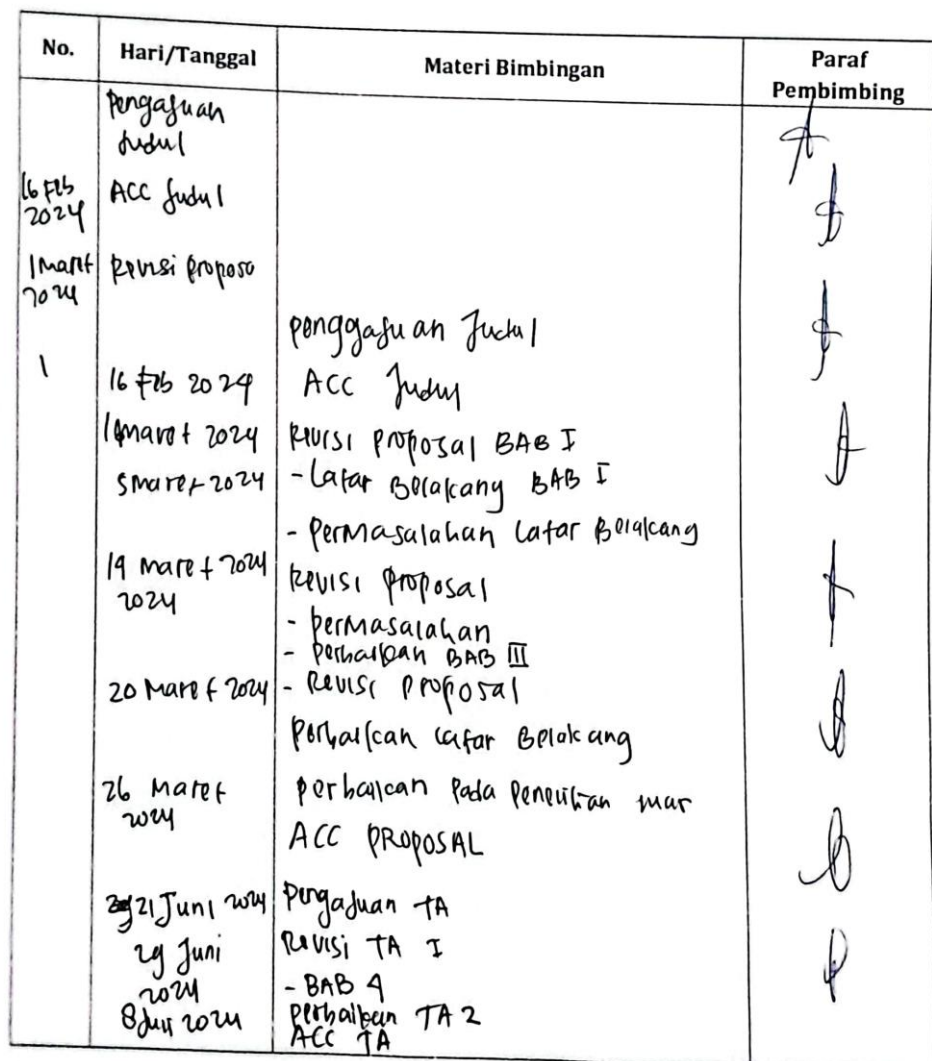 No. Hari/Tanggal Materi Bimbingan Paraf Pembimbing
Pengajuan
Judul
16 Feb 2024 ACC Judul
1 Maret 2024 Revisi Proposa
Penggajuan Judul
1
16 Feb 2024 ACC Judul
Maret 2024 Revisi Proposal BAB I
5 Maret 2024 - Latar Belakang BAB I
- Permasalahan Latar Belakang
19 Maret 2024 Revisi Proposal
2024
- Permasalahan
- Perbaikan BAB III
20 Maret 2024 - Revisi Proposal
Perbaikan Latar Belakang
26 Maret 2024 Perbaikan Pada Penelitian
ACC PROPOSAL
21 Juni 2024 Pengajuan TA
29 Juni 2024 Revisi TA I
- BAB 4
8 Juli 2024 Perbaikan TA 2
ACC TA